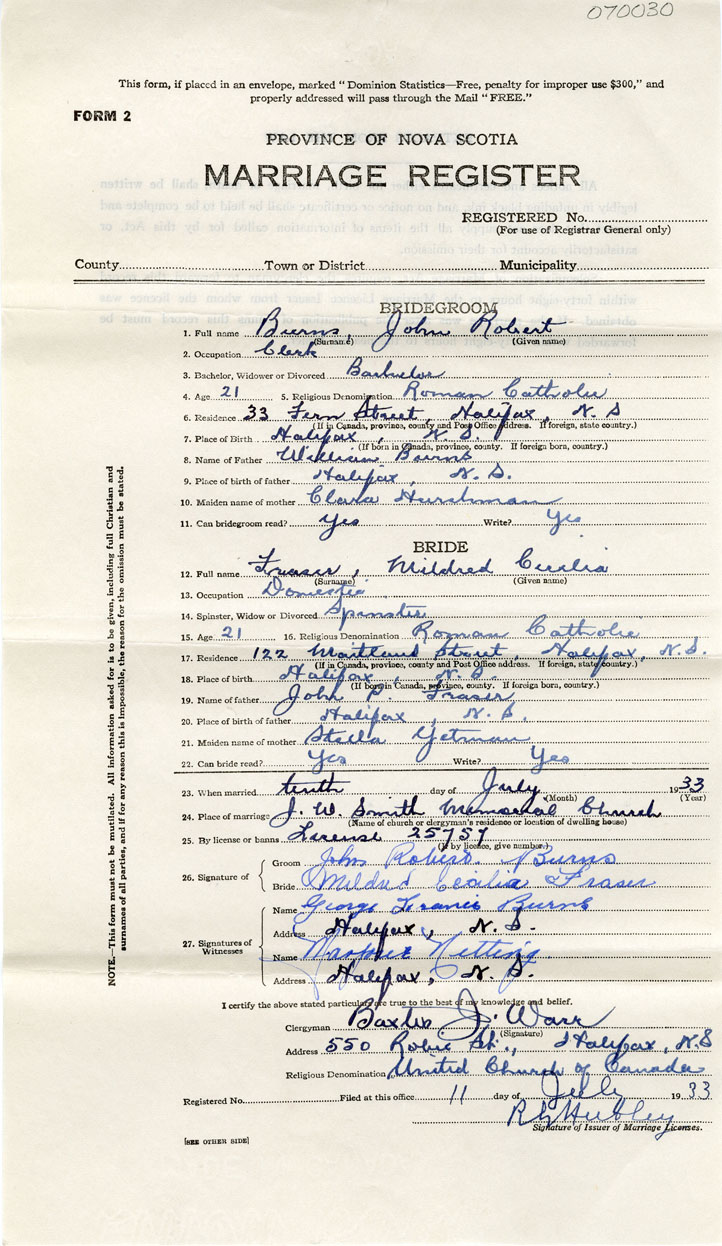 070030
This form, if placed in an envelope, marked "Dominion Statistics—Free, penalty for improper use $300," and
properly addressed will pass through the Mail "FREE."
FORM 2
PROVINCE OF NOVA SCOTIA
MARRIAGE REGISTER
REGISTERED No.
(For use of Registrar General only)
County Town or District Municipality
BRIDEGROOM
1. Full name Burns, John Robert
(Surname) (Given name)
2. Occupation Clerk
3. Bachelor, Widower or Divorced Bachelor
4. Age 21 5. Religious Denomination Roman Catholic
6. Residence 33 Fern Street, Halifax, N. S
(If in Canada, province, county and Post Office address. If foreign, state country.)
7. Place of Birth Halifax, N. S.
(If born in Canada, province, county. If foreign born, country.)
8. Name of Father William Burns
9. Place of birth of father Halifax, N. S.
10. Maiden name of mother Clara Hurshman
11. Can bridegroom read? Yes Write? Yes
BRIDE
12. Full name Fraser, Mildred Cecilia
(Surname) (Given name)
13. Occupation Domestic
14. Spinster, Widow or Divorced Spinster
15. Age 21 16. Religious Denomination Roman Catholic
17. Residence 122 Maitland Street, Halifax, N.S.
(If in Canada, province, county and Post Office address. If foreign, state country.)
18. Place of birth Halifax, N. S.
(If born in Canada, province, county. If foreign born, country.)
19. Name of father John Fraser
20. Place of birth of father Halifax, N. S.
21. Maiden name of mother Stella Getman
22. Can bride read? Yes Write? Yes
23. When married tenth day of July 1933
(Month) (Year)
24. Place of marriage J. W. Smith Memorial Church
(Name of church or clergyman's residence or location of dwelling house)
25. By license or banns License 25757
(If by licence, give number.)
26. Signature of
Groom John Robert Burns
Bride Mildred Cecilia Fraser
27. Signatures of Witnesses
Name George Francis Burns
Address Halifax, N. S.
Name Nutting
Address Halifax, N. S.
I certify the above stated particulars are true to the best of my knowledge and belief.
Clergyman Baxter J. Warr
(Signature)
Address 550 Robie St., Halifax, N.S
Religious Denomination United Church of Canada
Registered No. Filed at this office 11 day of July 1933
Hubley
Signature of Issuer of Marriage Licenses.
[SEE OTHER SIDE]
NOTE.—This form must not be mutilated. All information asked for is to be given, including full Christian and
surnames of all parties, and if for any reason this is impossible, the reason for the omission must be stated.